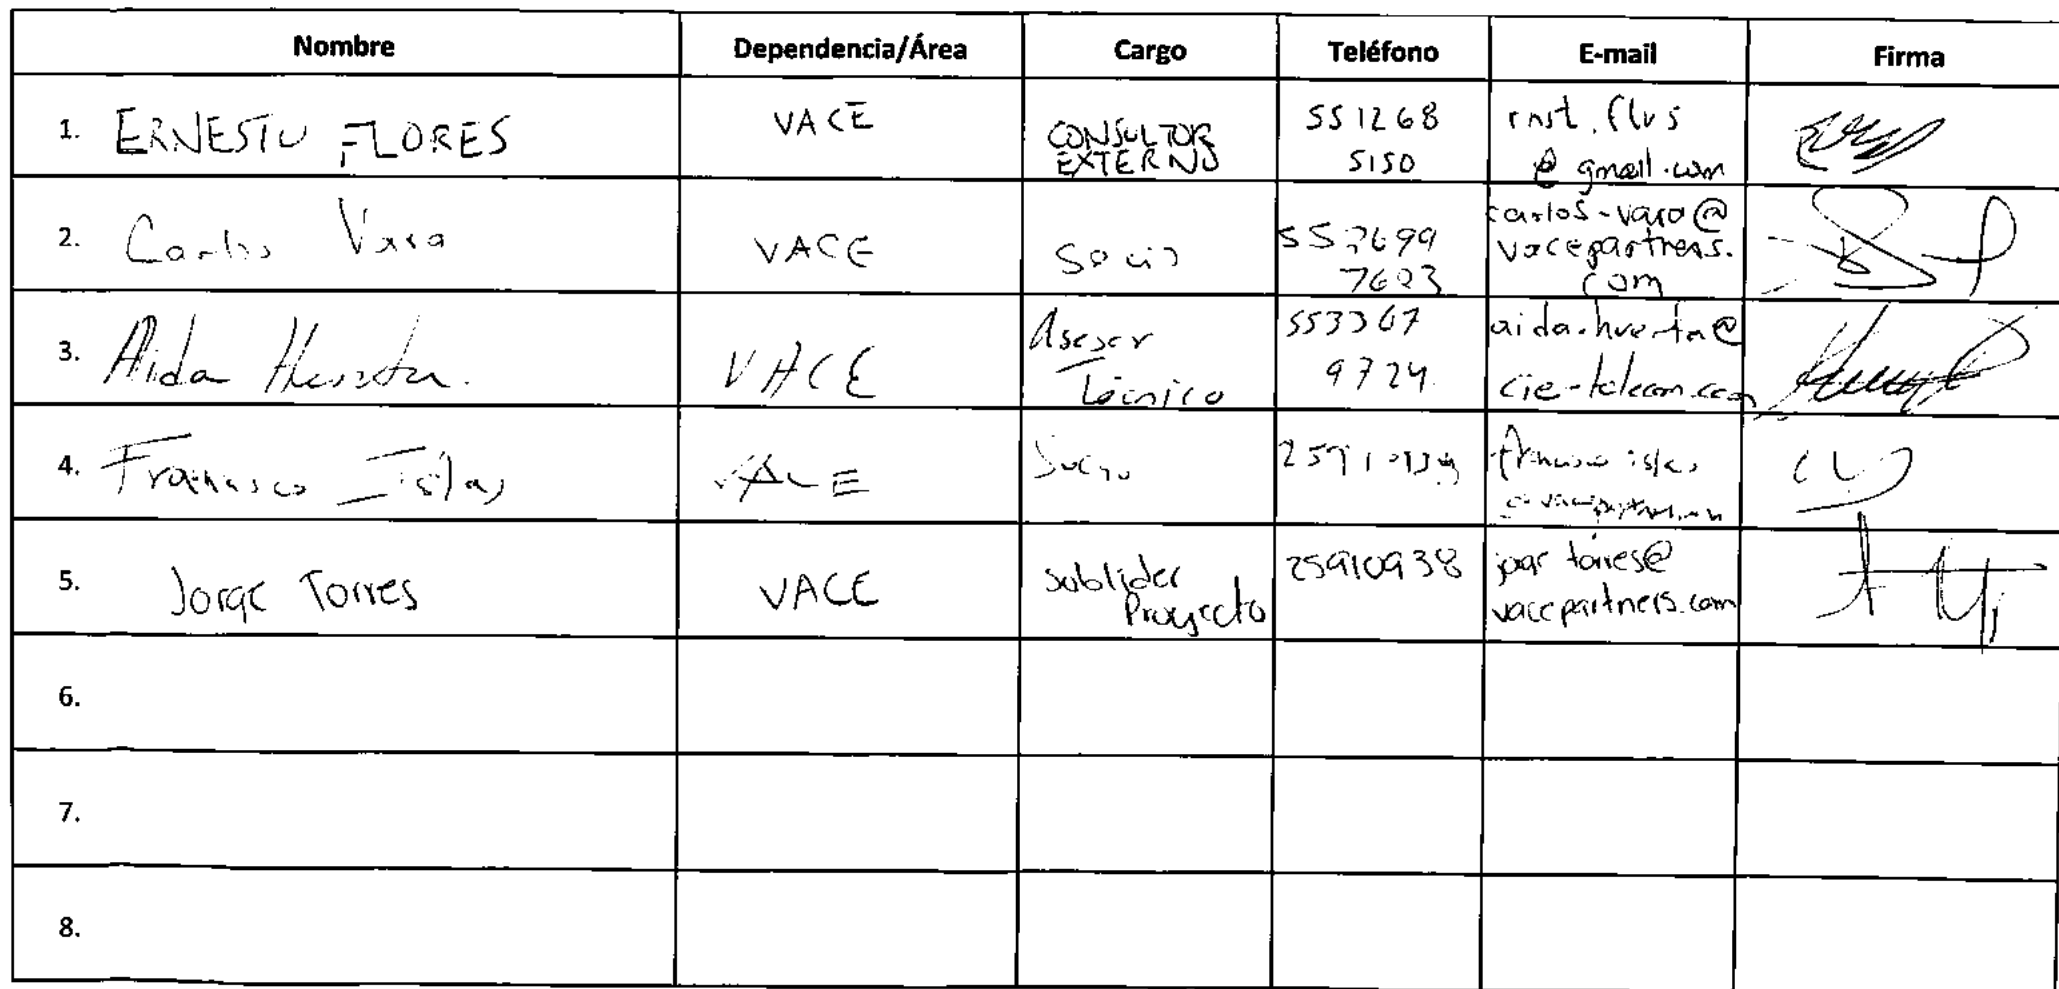 Nombre Dependencia/Área Cargo Teléfono E-mail Firma
1. ERNESTO FLORES VACE CONSULTOR EXTERNO 551268 5150 rnst.flrs @gmail.com
2. Carlos Vara VACE Socio 7603 carlos-vara@ vacepartners. com
3. Aida Huerta. VACE Asesor Técnico 553367 9724 aida.huerta@ cie-telecom.com
4. Francisco Islas VACE Socio
5. Jorge Torres VACE sublider Proyecto 25910938 torres@ vacepartners.com
6.
7.
8.